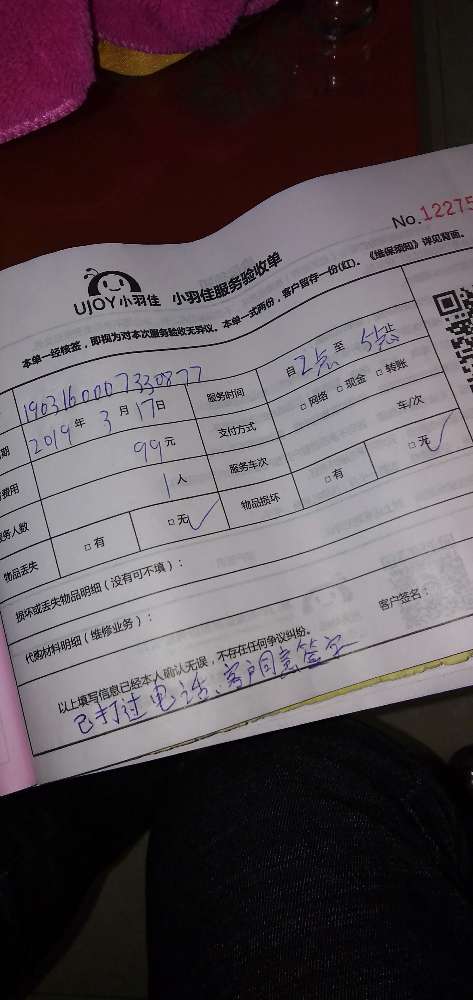 No.12275
UJOY小羽佳 小羽佳服务验收单
本单一经核签，即视为对本次服务验收无异议。本单一式两份，客户留存一份(红)。《维保须知》详见背面。
1903160007330877 服务时间 自2点至5点止
期 2019年3月17日 支付方式 □网络 □现金 □转账
费用 99元 服务车次 车/次
务人数 1人 物品损坏 □有 □无✓
物品丢失 □有 □无✓
损坏或丢失物品明细（没有可不填）：
代购材料明细（维修业务）：
以上填写信息已经本人确认无误，不存在任何争议纠纷。 客户签名：
已打过电话、客户同意签字